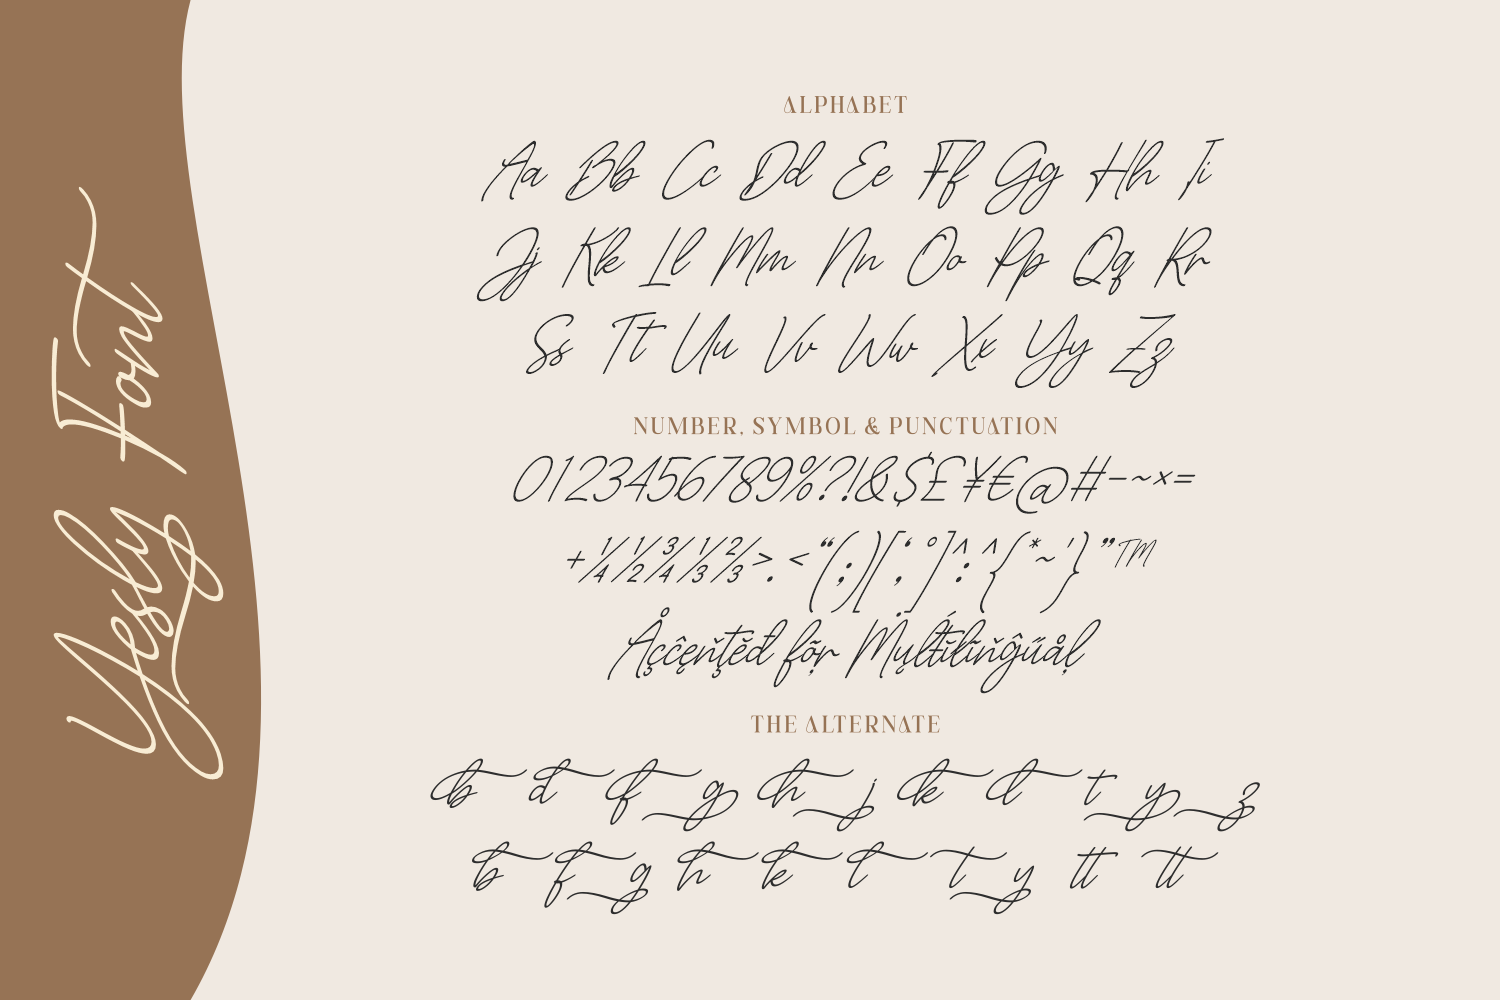 Yesly Font
ALPHABET
Aa Bb Cc Dd Ee Ff Gg Hh Ii
Jj Kk Ll Mm Nn Oo Pp Qq Rr
Ss Tt Uu Vv Ww Xx Yy Zz
NUMBER, SYMBOL & PUNCTUATION
0123456789%?!&$£¥€@#-~×=
+¼½¾⅓⅔>.<“(;)[‘,°]^:^{*~'}”™
THE ALTERNATE
b d f g h j k l t y z
b f g h k l t y tt tt